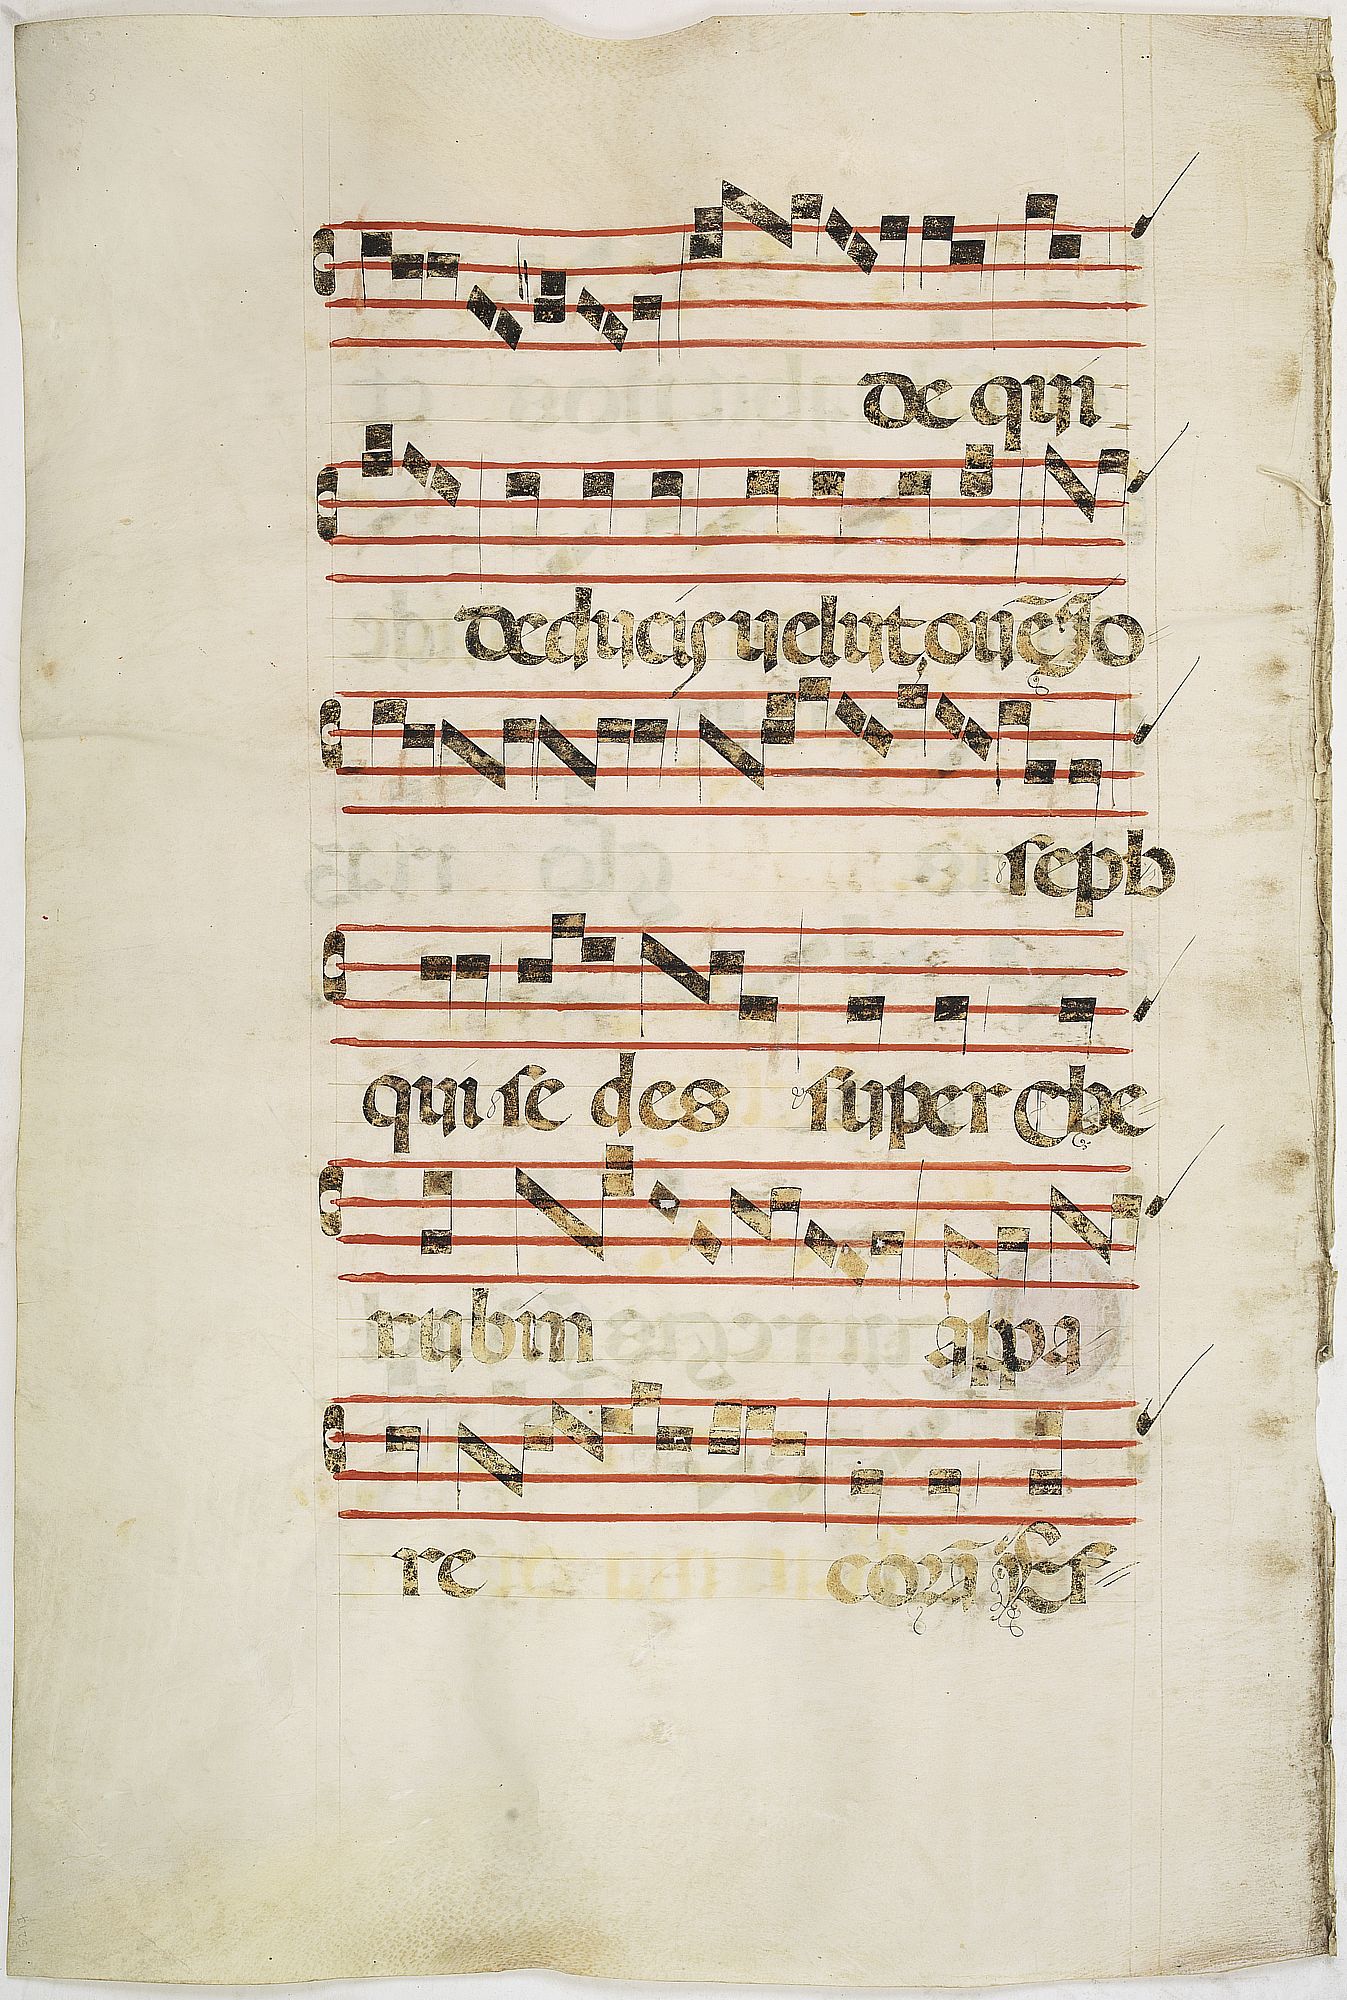 de qui
deducis velut ovē Jo
seph
qui se des super che
rubin appa
re corā Ef